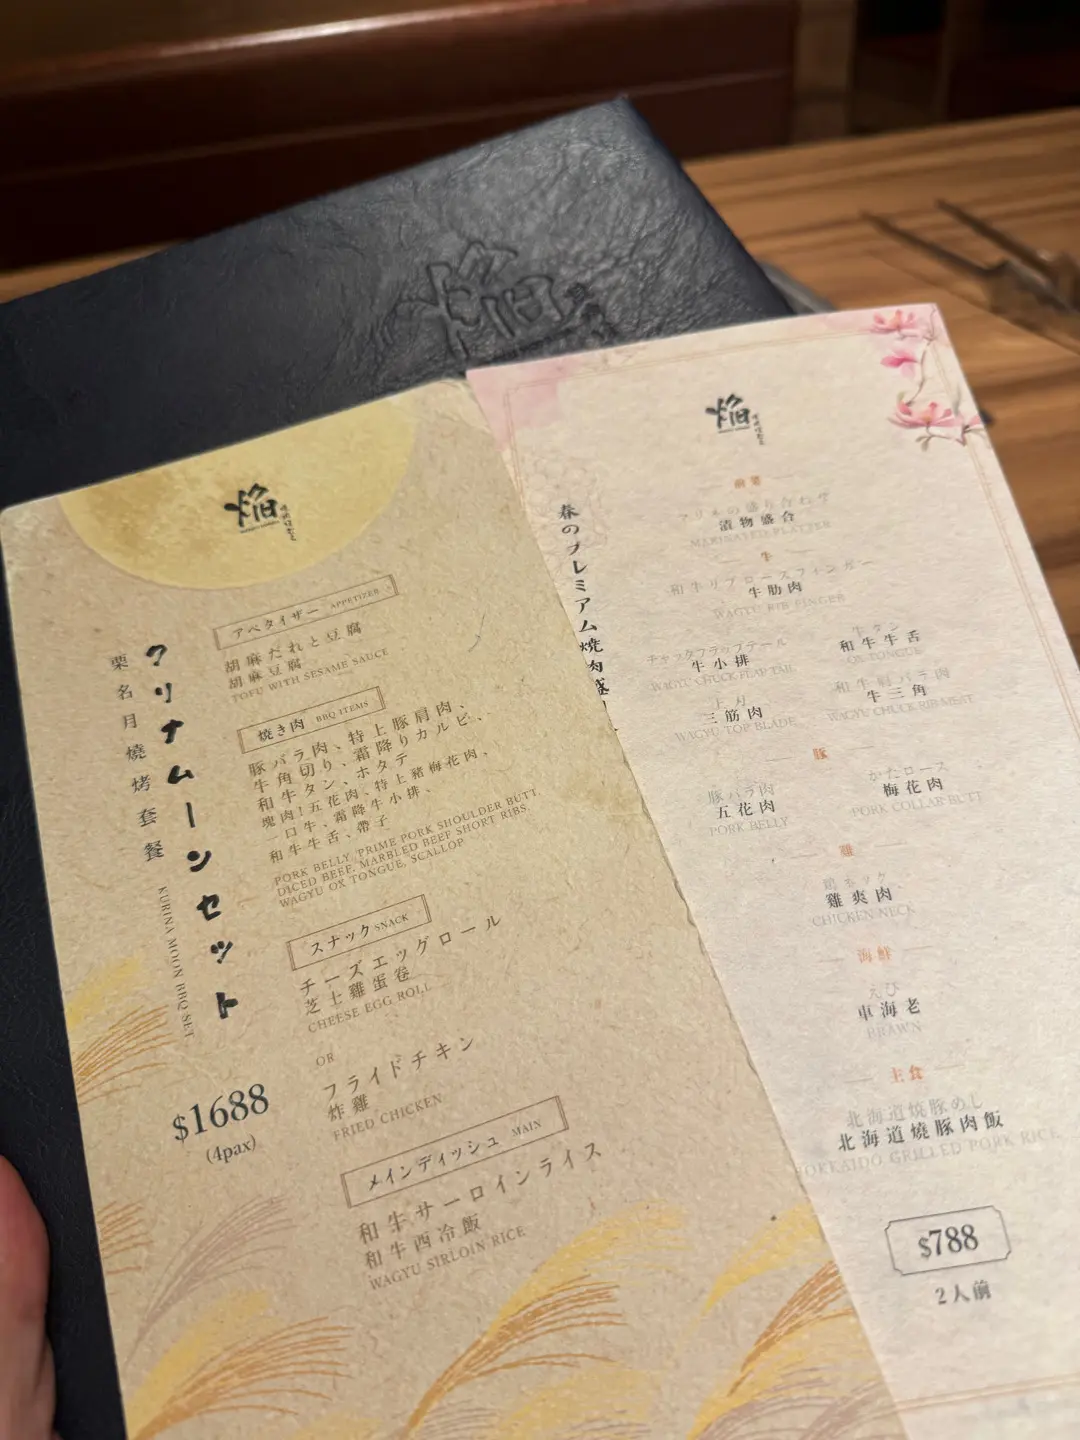 焔
焔
栗名月燒烤套餐
クリナムーンセット
KURINA MOON BBQ SET
$1688
(4pax)
アペタイザー APPETIZER
胡麻だれと豆腐
胡麻豆腐
TOFU WITH SESAME SAUCE
焼き肉 BBQ ITEMS
豚バラ肉、特上豚肩肉、
牛角切り、霜降りカルビ、
和牛タン、ホタテ
塊肉!五花肉、特上豬梅花肉、
一口牛、霜降牛小排、
和牛牛舌、帶子
PORK BELLY, PRIME PORK SHOULDER BUTT,
DICED BEEF, MARBLED BEEF SHORT RIBS,
WAGYU OX TONGUE, SCALLOP
スナック SNACK
チーズエッグロール
芝士雞蛋卷
CHEESE EGG ROLL
OR
フライドチキン
炸雞
FRIED CHICKEN
メインディッシュ MAIN
和牛サーロインライス
和牛西冷飯
WAGYU SIRLOIN RICE
焔
春のプレミアム焼肉盛
前菜
漬物盛合
MARINATED PLATTER
牛
和牛リブロースフィンガー
牛肋肉
WAGYU RIB FINGER
チャックフラップテール
牛小排
WAGYU CHUCK FLAP TAIL
牛タン
和牛牛舌
OX TONGUE
三筋肉
WAGYU TOP BLADE
和牛肩バラ肉
牛三角
WAGYU CHUCK RIB MEAT
豚
豚バラ肉
五花肉
PORK BELLY
かたロース
梅花肉
PORK COLLAR BUTT
雞
鶏ネック
雞爽肉
CHICKEN NECK
海鮮
えび
車海老
PRAWN
主食
北海道焼豚めし
北海道燒豚肉飯
HOKKAIDO GRILLED PORK RICE
$788
2人前